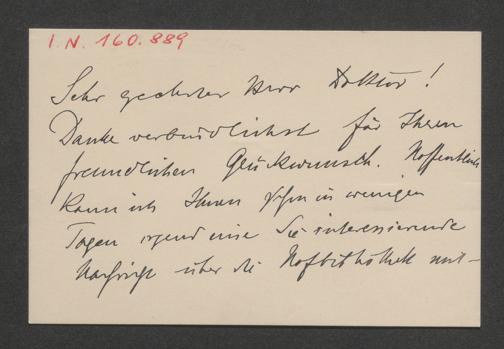 I.N. 160.889
Sehr geehrter Herr Doktor!
Danke verbindlichst für Ihren
freundlichen Glückwunsch. Hoffentlich
kann ich Ihnen schon in wenigen
Tagen irgend eine Sie interessierende
Nachricht über die Hofbibliothek mit-